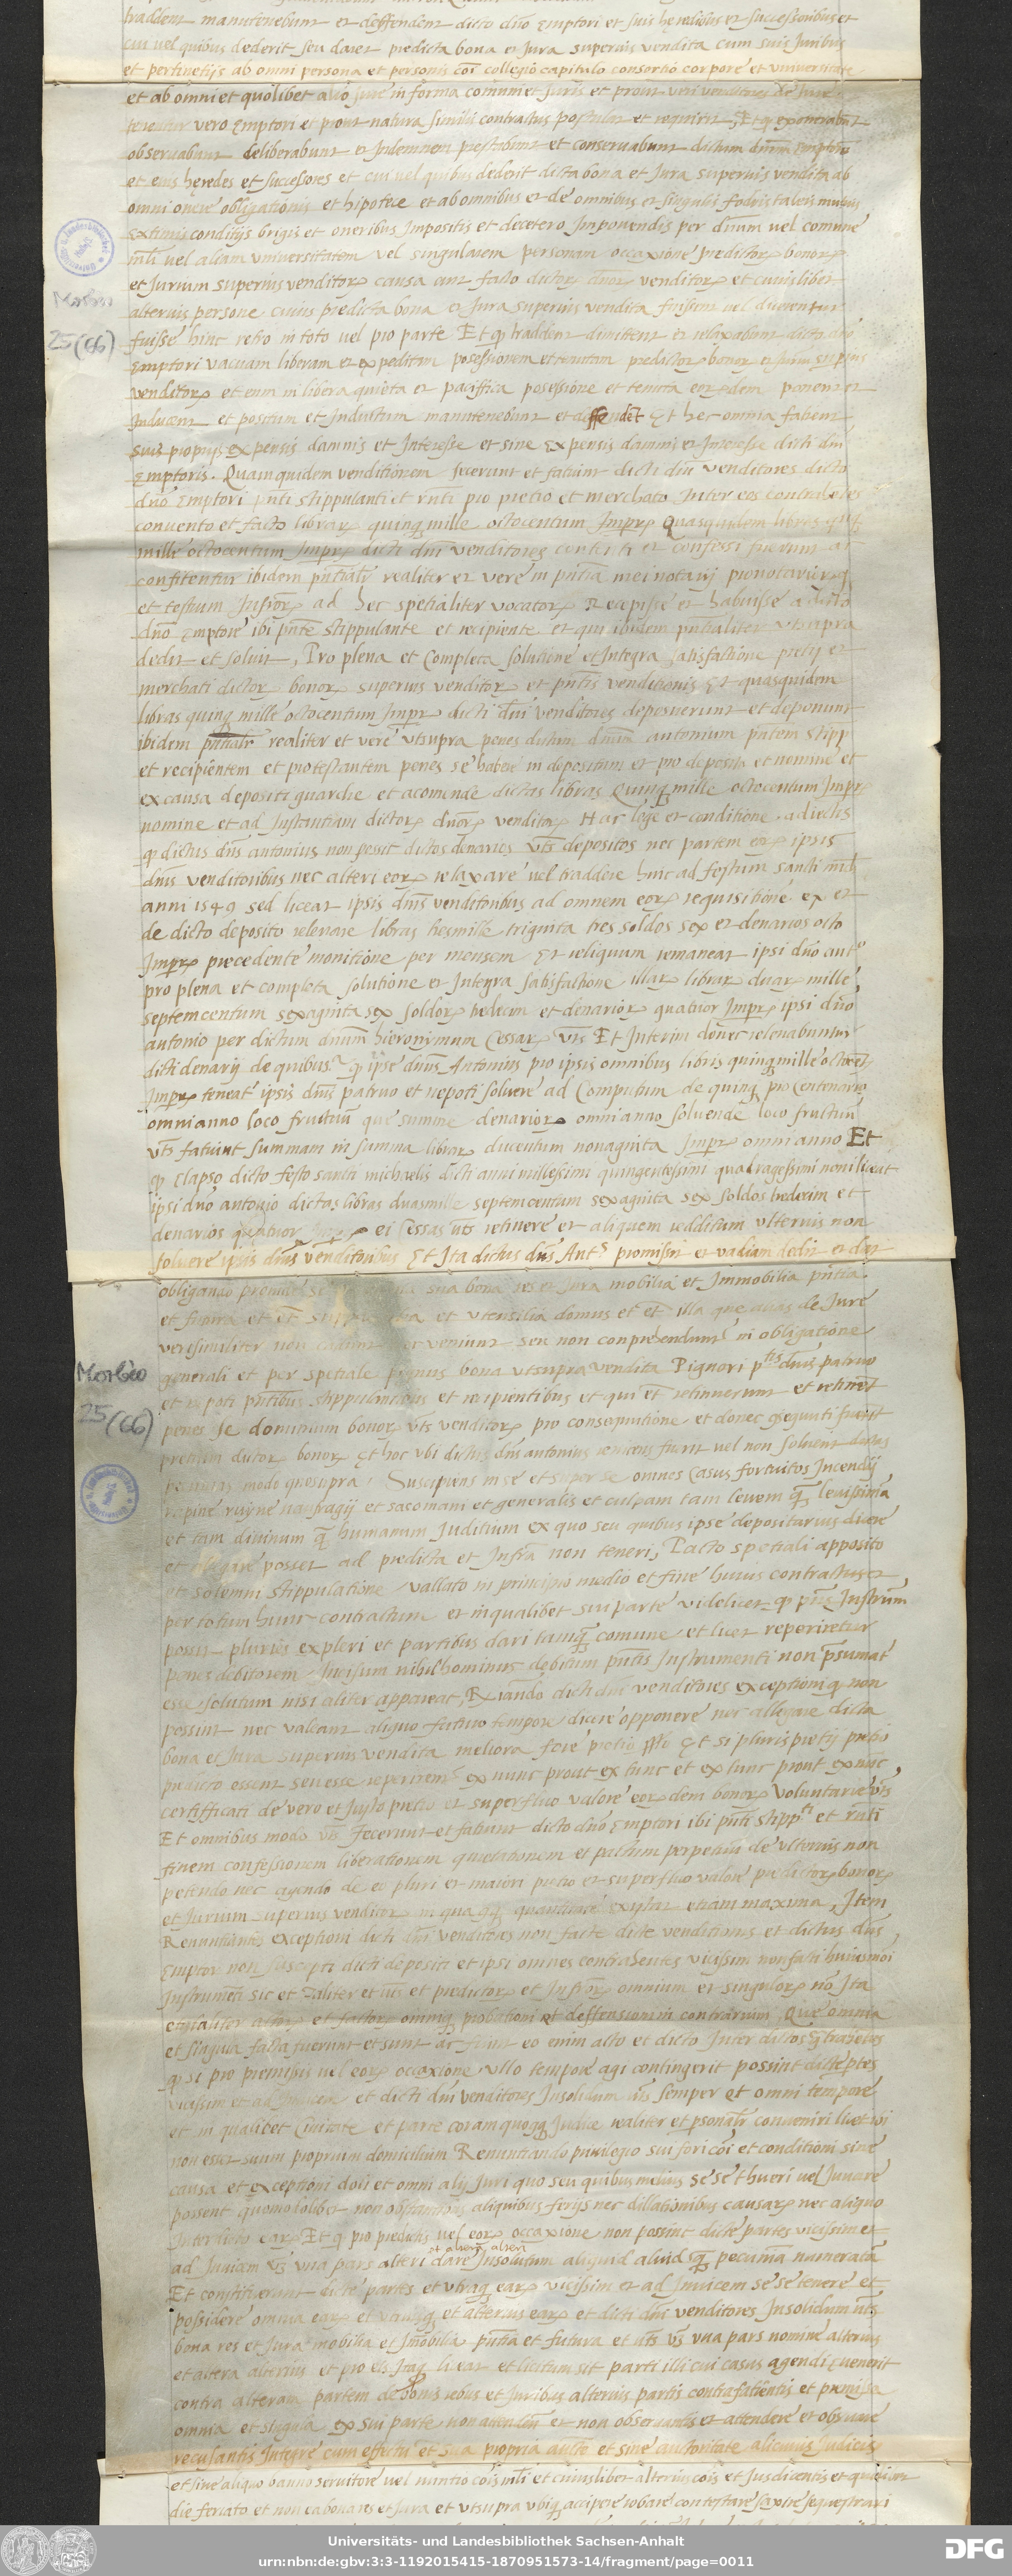 traddent manutenebunt et deffendent dicto dno Emptori et suis heredibus et successoribus et
cui vel quibus dederit seu daret predicta bona et Jura superius vendita cum suis Juribus
et pertinetijs ab omni persona et personis coi collegio capitulo consortio corpore et universitate
et ab omni et quolibet alio Jure in forma comuni et Juris et prout veri venditores de Jure
tenentur vero Emptori et prout natura similis contractus postulat et requirit, Et q exonerabunt
observabunt deliberabunt et Indemnem prestabunt et conservabunt dictum dnum Emptorem
et eius heredes et successores et cui vel quibus dederit dicta bona et Jura superius vendita ab
omni onere obligationis et hipotece et ab omnibus et de omnibus et singulis fodris taleis mutuis
Extimis conditijs brigis et oneribus Impositis et decetero Imponendis per dnum vel comune
mli vel aliam universitatem vel singularem personam occaxione predictor bonor
et Jurium superius venditor causa aut facto dictor dnor venditor et cuiuslibet
alterius persone cuius predicta bona et Jura superius vendita fuissent vel dicerentur
fuisse hinc retro in toto vel pro parte Et q traddent dimittent et relaxabunt dicto dno
Emptori vacuam liberam et expeditam possessionem et tenutam predictor bonor et Jurium superius
venditor et eum in libera quieta et paciffica possessione et tenuta eordem ponent et
Inducent et positum et Inductum manutenebunt et deffendet Et hec omnia fatient
suis proprijs expensis damnis et Interesse et sine Expensis damni et Interesse dicti dni
Emptoris. Quamquidem venditionem fecerunt et fatiunt dicti dni venditores dicto
dno Emptori pnti stippulanti et rnti pro pretio et merchato Inter eos contrahentes
convento et facto librar quinq mille octocentum Imper Quasquidem libras quinq
mille octocentum Imper dicti dni venditores contenti et confessi fuerunt ac
confitentur ibidem pntialr realiter et vere in pntia mei notarij pronotarior q
et testium Infror ad hec spetialiter vocator Recepisse et habuisse a dicto
dno Emptore ibi pnte stippulante et recipiente et qui ibidem pntialiter vtsupra
dedit et solvit, Pro plena et completa solutione et Integra satisfactione pretij et
merchati dictor bonor superius venditor et pntis venditionis Et quasquidem
libras quinq mille octocentum Imper dicti dni venditores deposuerunt et deponunt
ibidem pntialr realiter et vere vtsupra penes dictum dnum antonium pntem stipp
et recipientem et protestantem penes se habere in depositum et pro deposito et nomine et
ex causa depositi guardie et acomende dictas libras Quinq mille octocentum Imper
nomine et ad Instantiam dictor dnor venditor Hac lege et conditione adiectis
q dictus dns antonius non possit dictos denarios vts depositos nec partem eor ipsis
dnis venditoribus nec alteri eor relaxare vel traddere hinc ad festum sancti mich
anni 1549 sed liceat ipsis dnis venditoribus ad omnem eor requisitione ex et
de dicto deposito relevare libras tresmille triginta tres soldos sex et denarios octo
Imper precedente monitione per mensem Et reliquum remaneat ipsi dno anto
pro plena et completa solutione et Integra satisfactione illar librar duar mille
septemcentum sexaginta sex soldor tredecim et denarior quatuor Imper ipsi dno
antonio per dictum dnum hieronymum Cessar vts Et Interim donec relevabuntur
dicti denarij de quibus s q ipse dnus Antonius pro ipsis omnibus libris quinq mille octocent
Imper teneat ipsis dnis patruo et nepoti solvere ad Computum de quinq pro centenario
omni anno loco fructuum que summe denarior omni anno solvende loco fructuu
vts fatiunt summam in summa librar ducentum nonaginta Imper omni anno Et
q elapso dicto festo sancti michaelis dicti anni millessimi quingentessimi quadragessimi noni liceat
ipsi dno antonio dictas libras duasmille septemcentum sexaginta sex soldos tredecim et
denarios quatuor Imper ei Cessas vts retinere et aliquem redditum vlterius non
solvere ipsis dnis venditoribus Et Ita dictus dns Ants promissit et vadiam dedit et dat
obligando
et futura
verisimiliter non cadunt nec veniunt seu non conprehendunt in obligatione
generali et per spetiale pignus bona vtsupra vendita Pignori ptis dnis patruo
et nepoti pntibus stippulantibus et recipientibus et qui et retinuerunt et retinet
penes se dominium bonor vts venditor pro consequtione et donec gsequuti fuerint
pretium dictor bonor Et hoc vbi dictus dns antonius renuens fuerit vel non solverit dictas
pecunias modo quosupra Suscipiens in se et super se omnes Casus fortuitos Incendij
rapine ruyne naufragij et sacomani et generalis et culpam tam levem q levissima
et tam divinum q humanum Juditium ex quo seu quibus ipse depositarius dicere
et allegare posset ad predicta et Infra non teneri, Pacto spetiali apposito
et solemni stippulatione vallato in principio medio et fine huius contractus et
per totum hunc contractum et in qualibet sui parte videlicet q pns Instrum
possit pluries expleri et partibus dari tamq comune et licet reperiretur
penes debitorem Incisum nihilhominus debitum pntis Instrumenti non psumat
esse solutum nisi aliter appareat, Renuntiando dicti dni venditores exceptioni q non
possint nec valeant aliquo futuro tempore dicere opponere nec allegare dicta
bona et Jura superius vendita meliora fore pretio sto Et si pluris pretij pretio
predicto essent seu esse reperirent ex nunc prout ex tunc et ex tunc prout ex nunc,
certifficati de vero et Justo pretio et superfluo valore eordem bonor voluntarie vts
Et omnibus modo vts fecerunt et fatiunt dicto dno Emptori ibi pnti stippti et rnti
finem confessionem liberationem quietationem et pactum perpetuu de vlterius non
petendo nec agendo de eo pluri et maiori pretio et superfluo valore predictor bonor
et Jurium superius venditor in quaq quantitate existat etiam maxima, Item
Renuntiantes exceptioni dicti dni venditores non facte dicte venditionis et dictus dns
Emptor non suscepti dicti depositi et ipsi omnes contrahentes vicissim non facti huiusmoi
Instrumenti sic et taliter et vts et predictor et Infror omnium et singulor no Ita
et qualiter actor et factor omniq probationi et deffensioni in contrarium, Que omnia
et singula facta fuerunt et sunt ac fiunt eo enim acto et dicto Inter dictos gtrahetes
q si pro premissis vel eor occaxione vllo tempore agi contingerit possint dicte ptes
vicissim et ad Invicem et dicti dni venditores Insolidum vts semper et omni tempore
et in qualibet Civitate et parte coram quoq Judice realiter et psonalr conveniri licet ibi
non esset suum proprium domicilium Renuntiando privilegio sui fori coi et conditioni sine
causa et exceptioni doli et omni alij Juri quo seu quibus melius se se thueri vel Juvare
possent quomodolibet non obstantibus aliquibus ferijs nec dillationibus causar nec aliquo
Interdicto ear Et q pro predictis vel eor occaxione non possint dicte partes vicissim et
et altera alteri
ad Invicem vts vna pars alteri dare Insolutum aliquid aliud q pecuniam numeratam
Et constituerunt dicte partes et vtraq ear vicissim et ad Invicem se se tenere et
possidere omnia ear et vtriusq et alterius ear et dicti dni venditores Insolidum vts
bona res et Jura mobilia et Imobilia pntia et futura et vts vna pars nomine alterius
et altera alterius et pro eis Itaq liceat et licitum sit parti illi cui casus agendi evenerit
contra alteram partem de bonis rebus et Juribus alterius partis contrafatientis et premissa
omnia et singula ex sui parte non attendentis et non observantis et attendere et observare
recusantis Integre cum effectu et sua propria aucte et sine autoritate alicuius Judicis
et sine aliquo banno servitore vel nuntio cois mli et cuiuslibet alterius cois et Jusdicentis et quolibet
die feriato et non ea bona res et Jura et vtsupra vbiq accipere robare contestare saxire sequestrari
Morbio
25(66)
Morbio
25(66)
Universitäts- und Landesbibliothek Sachsen-Anhalt
urn:nbn:de:gbv:3:3-1192015415-1870951573-14/fragment/page=0011
DFG